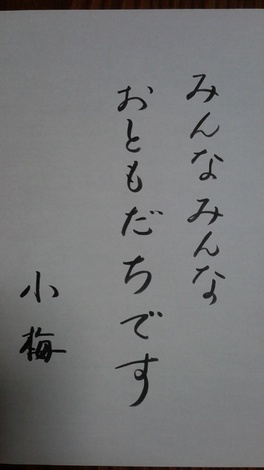 みんなみんな
おともだちです
小梅